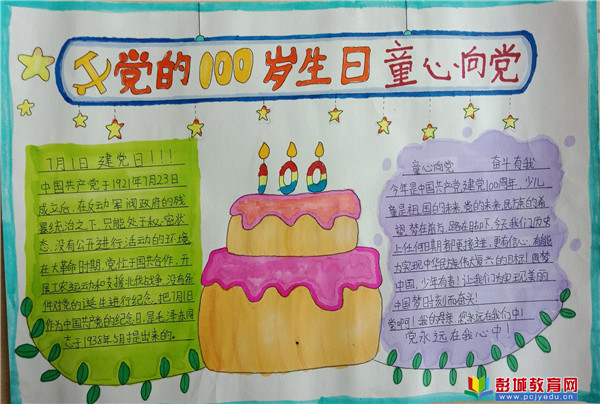 党的100岁生日 童心向党
7月1日 建党日!!!
中国共产党于1921年7月23日
成立后,在反动军阀政府的残
暴统治之下,只能处于秘密状
态,没有公开进行活动的环境
在大革命时期,党忙于国共合作,开
展工农运动和支援北伐战争,没有条
件对党的诞生进行纪念。把7月1日
作为中国共产党的纪念日,是毛泽东同
志于1938年5月提出来的。
100
童心向党 奋斗有我
今年是中国共产党建党100周年,少儿
是祖国的未来,党的未来,民族的希
望,梦在前方,路在脚下,今天,我们比历史
上任何时期都更接近,更有信心,有能
力实现中华民族伟大复兴的目标!圆梦
中国,少年有责!让我们为实现美丽
中国梦时刻而奋斗!
党啊!我的母亲,您永远在我们中!
党永远在我心中!
彭城教育网
www.pcjyedu.cn